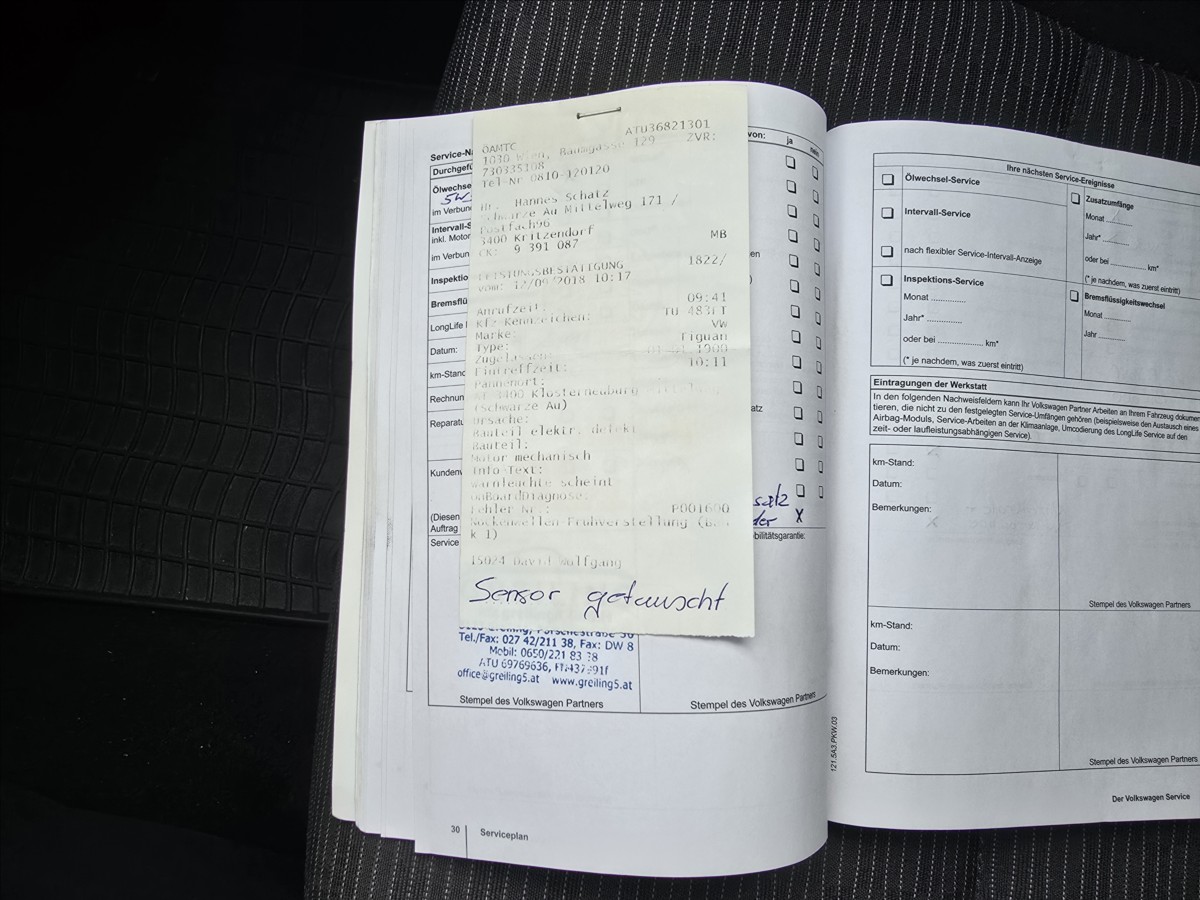 ÖAMTC ATU36821301
1030 Wien, Baumgasse 129 ZVR:
730335108
Tel-Nr 0810-120120
Hr. Hannes Schatz
Schwarze Au Mittelweg 171 /
Postfach96
3400 Kritzendorf
CK: 9 391 087 MB
LEISTUNGSBESTÄTIGUNG 1822/
vom: 12/09/2018 10:17
Anrufzeit: 09:41
Kfz Kennzeichen: TU 483IT
Marke: VW
Type: Tiguan
Zugelassen: 01.01.1900
Eintreffzeit: 10:11
Pannenort:
3400 Klosterneuburg
(Schwarze Au)
Ursache:
Bauteil elektr. defekt
Bauteil:
Motor mechanisch
Info-Text:
Warnleuchte scheint
OnBoardDiagnose:
Fehler Nr.: P001600
Nockenwellen Frühverstellung (Ban
k 1)
15024 David Wolfgang
Sensor getauscht
Service-N
Durchgefü
Ölwechse
5W
im Verbun
Intervall-S
inkl. Motor
im Verbun
Inspektio
Bremsflü
LongLife
Datum:
km-Stand
Rechnun
Reparatu
Kundenv
(Diesen
Auftrag
Service
von: ja nein
en
)
atz
satz
der X
bilitätsgarantie:
Tel./Fax: 027 42/211 38, Fax: DW 8
Mobil: 0650/221 83 38
ATU 69769636,
office@greiling5.at www.greiling5.at
Stempel des Volkswagen Partners Stempel des Volkswagen Partners
30 Serviceplan
Ihre nächsten Service-Ereignisse
Ölwechsel-Service
Intervall-Service
nach flexibler Service-Intervall-Anzeige
Inspektions-Service
Monat ..............
Jahr* ..............
oder bei .................. km*
(* je nachdem, was zuerst eintritt)
Zusatzumfänge
Monat ..........
Jahr* ..........
oder bei .............. km*
(* je nachdem, was zuerst eintritt)
Bremsflüssigkeitswechsel
Monat ..........
Jahr ..........
Eintragungen der Werkstatt
In den folgenden Nachweisfeldern kann Ihr Volkswagen Partner Arbeiten an Ihrem Fahrzeug dokumen
tieren, die nicht zu den festgelegten Service-Umfängen gehören (beispielsweise den Austausch eines
Airbag-Moduls, Service-Arbeiten an der Klimaanlage, Umcodierung des LongLife Service auf den
zeit- oder laufleistungsabhängigen Service).
km-Stand:
Datum:
Bemerkungen:
Stempel des Volkswagen Partners
km-Stand:
Datum:
Bemerkungen:
Stempel des Volkswagen Partners
121.5A3.PKW.03
Der Volkswagen Service